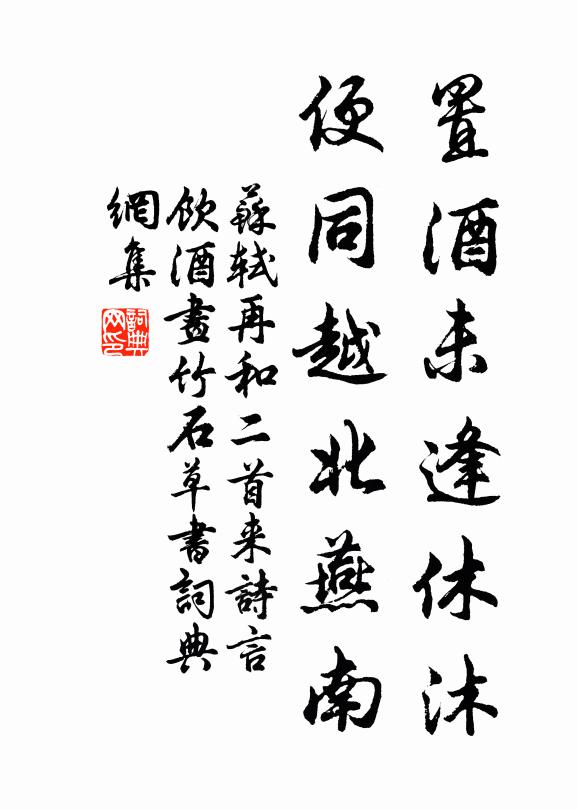 置酒未逢休沐
便同越北燕南
蘇軾再和二首来詩言
飲酒畫竹石草書詞典
網集
詞典网印